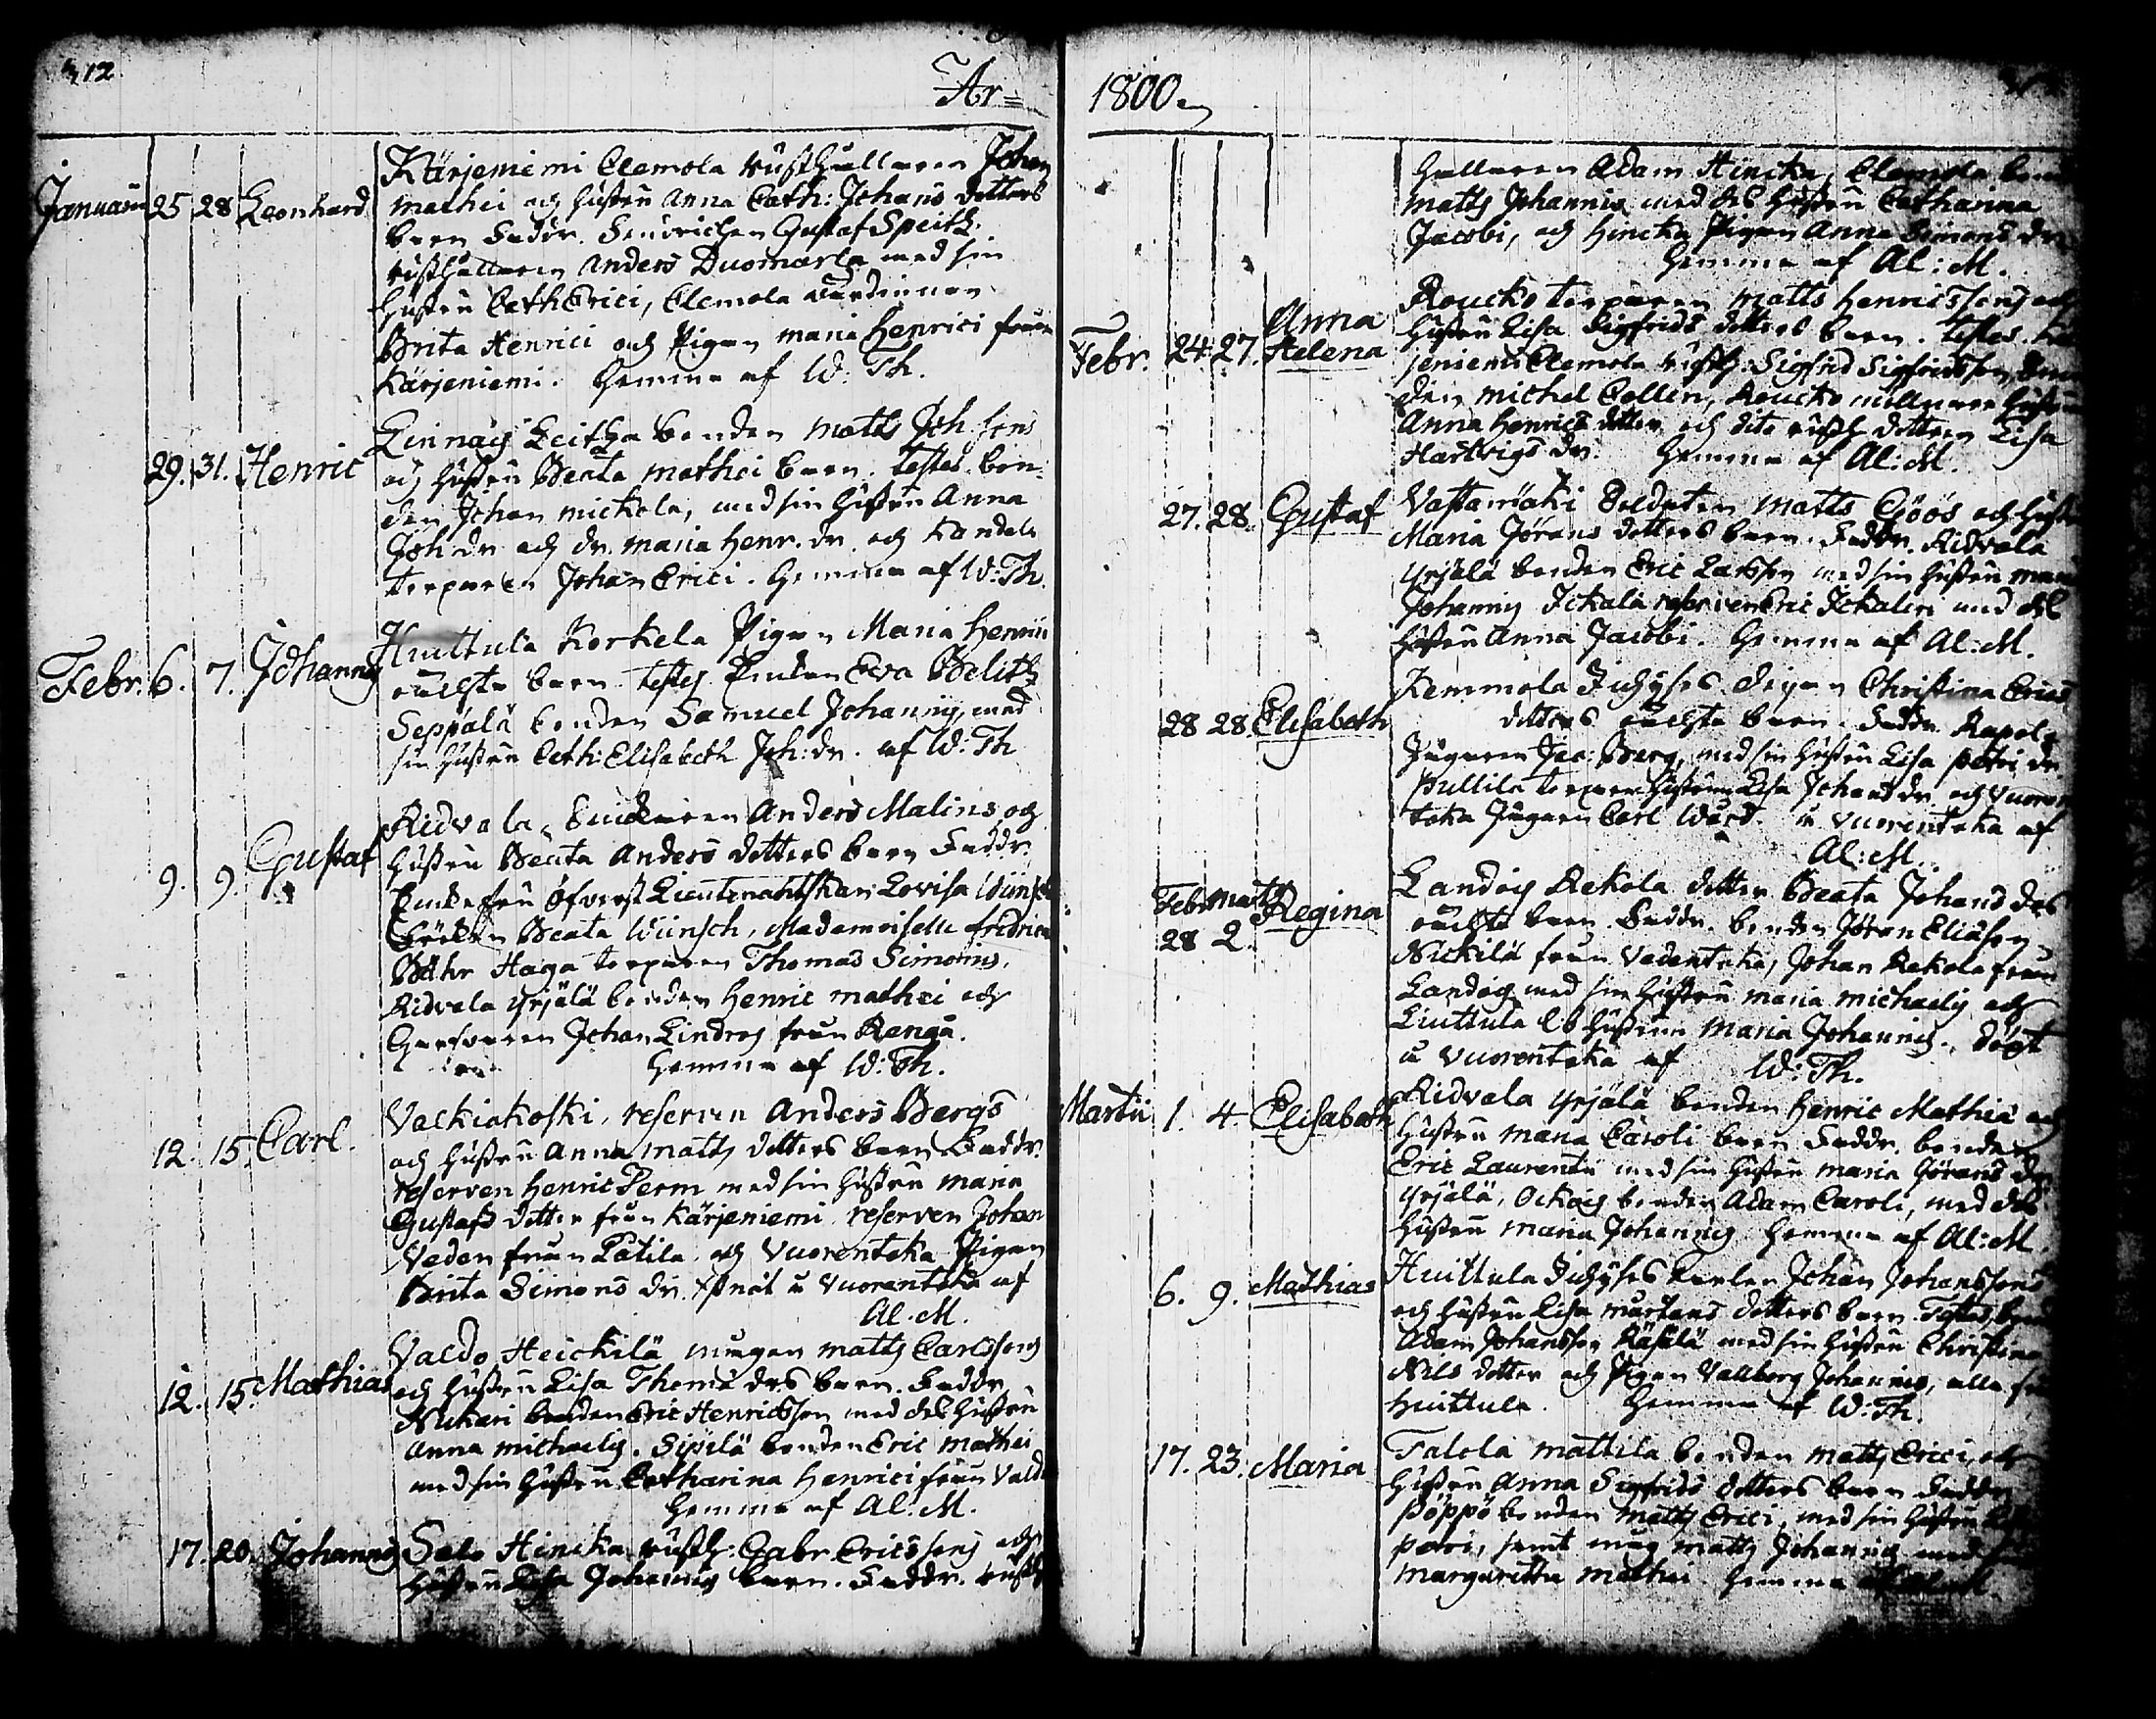 312
År=
Januarii 25 28 Leonhard
Kärjeniemi Clemola rusthållaren Johan
Mathei och hustru Anna Cath: Johans dotters
barn Faddr. Fendrichen Gustaf Speitz.
rusthållaren Anders Duomarla med sin
hustru Cath Erici, Clemola värdinnan
Brita Henrici och Pigan Maria Henrici från
Kärjeniemi. Hemma af W: Th.
29. 31. Henric
Linnais Leitha bonden Matts Joh. sons
och hustru Beata Mathei barn. testes. bon-
den Johan Mickola, med sin hustru Anna
Joh dr och dr. Maria Henr. dr och
torparen Johan Erici. Hemma af W: Th.
Febr. 6. 7. Johannes
Huittula Korkela Pigan Maria Henrici
oächta barn testes Enkan Eva Belitz
Seppälä bonden Samuel Johannis, med
sin hustru Cath: Elisabeth Joh: dr. af W: Th
9. 9. Gustaf
Ridvala Anders Malins och
hustru Beata Anders dotters barn Faddr.
Enkefru Öfverst Lieutenantskan Lovisa Wünsch
Fröken Beata Wünsch, Mademoiselle Fredrica
Bähr Haga torparen Thomas Simonis,
Ridvala Yrjälä bonden Henric Mathei och
Garfvaren Johan Lindros från Längä.
Hemma af W: Th.
12. 15. Carl.
Valkiakoski, reserven Anders Bergs
och hustru Anna Matts dotters barn Faddr.
reserven Henric Perm med sin hustru Maria
Gustafs dotter från Kärjeniemi, reserven Johan
Veden från Lotila och Vuorentaka Pigan
Brita Simons dr. döpt å Vuorentaka af
Al. M.
12. 15. Mathias
Valdo Heickilä mågen Matts Carlssons
och hustru Lisa Thomæ drs barn. Faddr.
Nuhari bonden Eric Henricsson med dess hustru
Anna Michaelis. Sipilä bonden Eric Mathei
med sin hustru Catharina Henrici från Valdo
Hemma af Al: M.
17. 20. Johannes
Salo Hincka rusth: Gabr Ericssons och
hustru Lisa Johannis barn. Faddr. rusth
1800.
hållaren Adam Hincka, Clemola bond
Matts Johannis med dess hustru Catharina
Jacobi, och Hincka Pigan Anna Simons dr
Hemma af Al: M.
Febr. 24. 27. Anna
Helena
Roucko torparen Matts Henrissons och
hustru Lisa Sigfrids dotters barn. testes. Kär
jeniemi Clemola rusth: Sigfrid Sigfridsson,
den Michel Collin, Roucko möllnare hustrun
Anna Henrics dotter och dito rusth dottren Lisa
Hartvigs dr. Hemma af Al: M.
27. 28. Gustaf
Soldaten Matts Göös och hustru
Maria Jörans dotters barn. Faddr. Ridvala
Yrjälä bonden Eric Larsson med sin hustru Maria
Johannis Ickala reserven Eric Ickalin med dess
hustru Anna Jacobi. Hemma af Al: M.
28 28. Elisabeth
Kemmola Inhyses Pigan Christina Erics
dotters oächta barn. Faddr. Rapola
Jägaren Jac: Berg, med sin hustru Lisa Petri dr.
Pullila torpare hustrun Lisa Johans dr och Vuoren
taka Jägaren Carl Wärd. å Vuorentaka af
Al: M.
Febr Martii Regina
28 2.
Landois Rekola dotter Beata Johans drs
oächta barn. Faddr. bonden Jöran Eliæson
Nickilä från Vedentaka, Johan Rekola från
Landois med sin hustru Maria Michaelis och
Liuttula hustrun Maria Johannis. döpt
å Vuorentaka af W: Th.
Martii 1. 4. Elisabeth
Ridvala Yrjälä bonden Henric Mathei och
hustru Maria Caroli barn Faddr. bonden
Eric Laurentii med sin hustru Maria Görans dr
Yrjälä, Ockois bonden Adam Caroli, med dess
hustru Maria Johannis Hemma af Al: M.
6. 9. Mathias
Huittula Inhyses karlen Johan Johanssons
och hustru Lisa Mårtens dotters barn. Testes, bond
Adam Johansson Räsälä med sin hustru Christina
Nils dotter och Pigan Vallborg Johannis, alla från
Huittula. Hemma af W: Th.
17. 23. Maria
Talola Mattila bonden Matts Erici, och
hustru Anna Sigfrids dotters barn Faddr
Pöppö bonden Matts Erici, med sin hustru
Petri, samt måg Matts Johannis med
Margaretta Mathei. Hemma af Al: M.